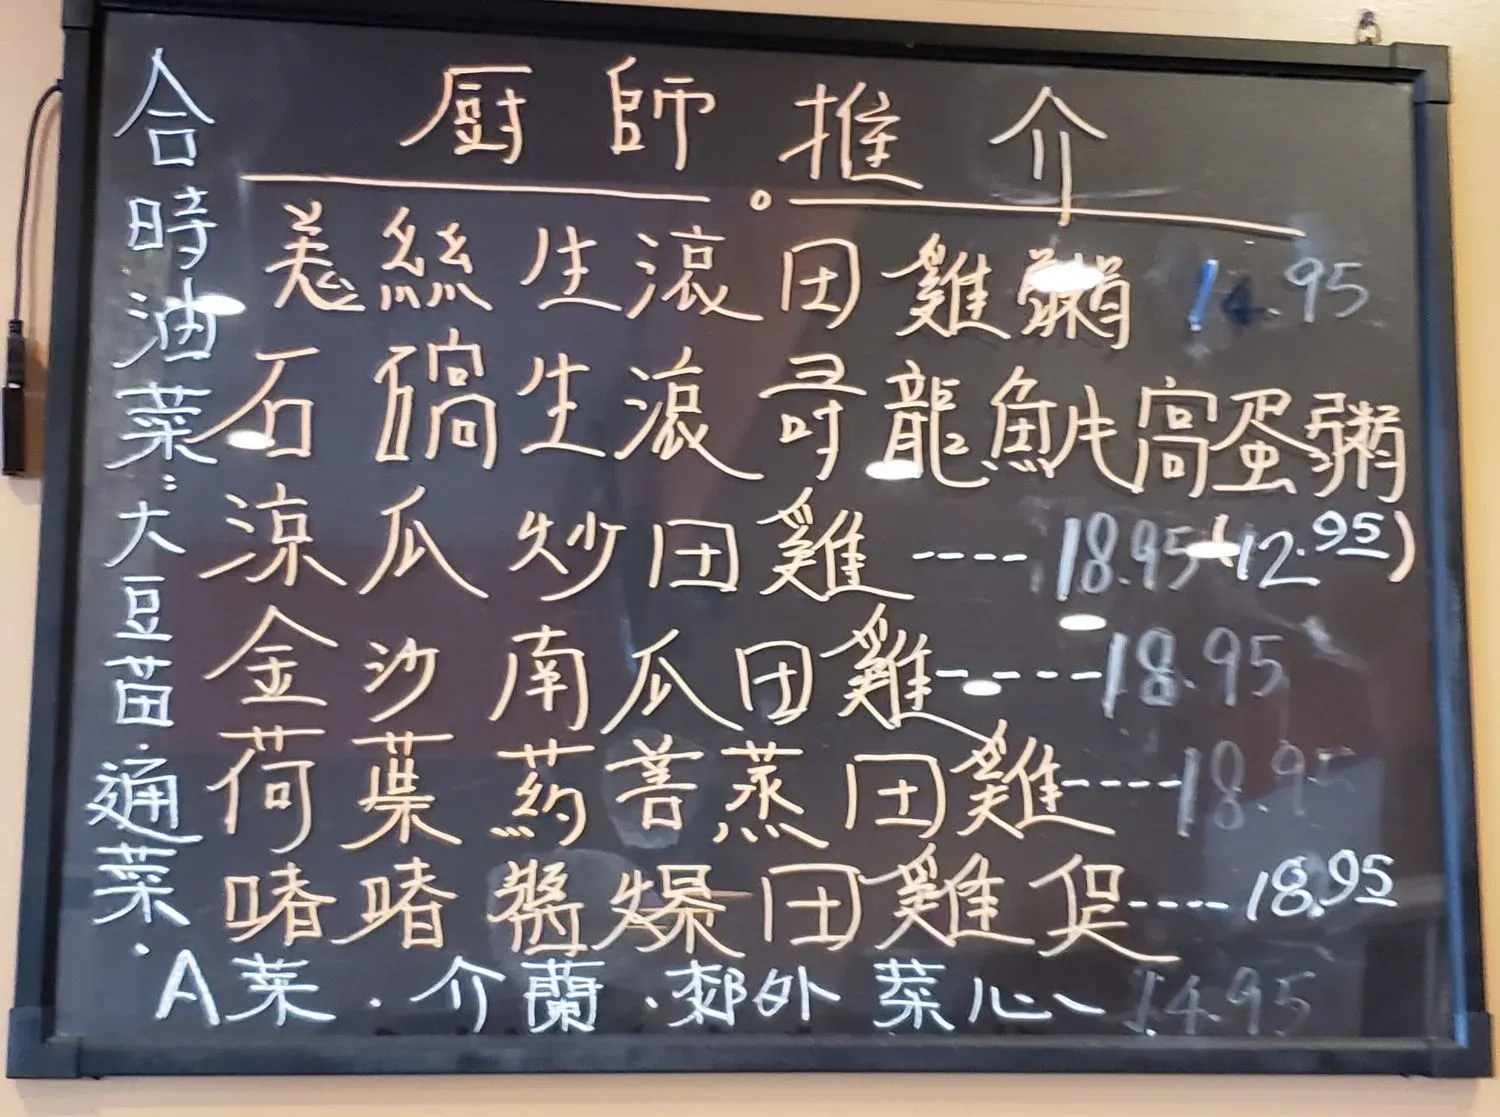 厨師推介
羗絲生滾田雞粥 14.95
石碣生滾哥龍魩片窩蛋粥
涼瓜炒田雞----18.95(12.95)
金沙南瓜田雞-----18.95
荷葉葯善蒸田雞----18.95
啫啫醬爆田雞煲----18.95
A菜.介蘭.郊外菜心 14.95
合時油菜:大豆苗.通菜.